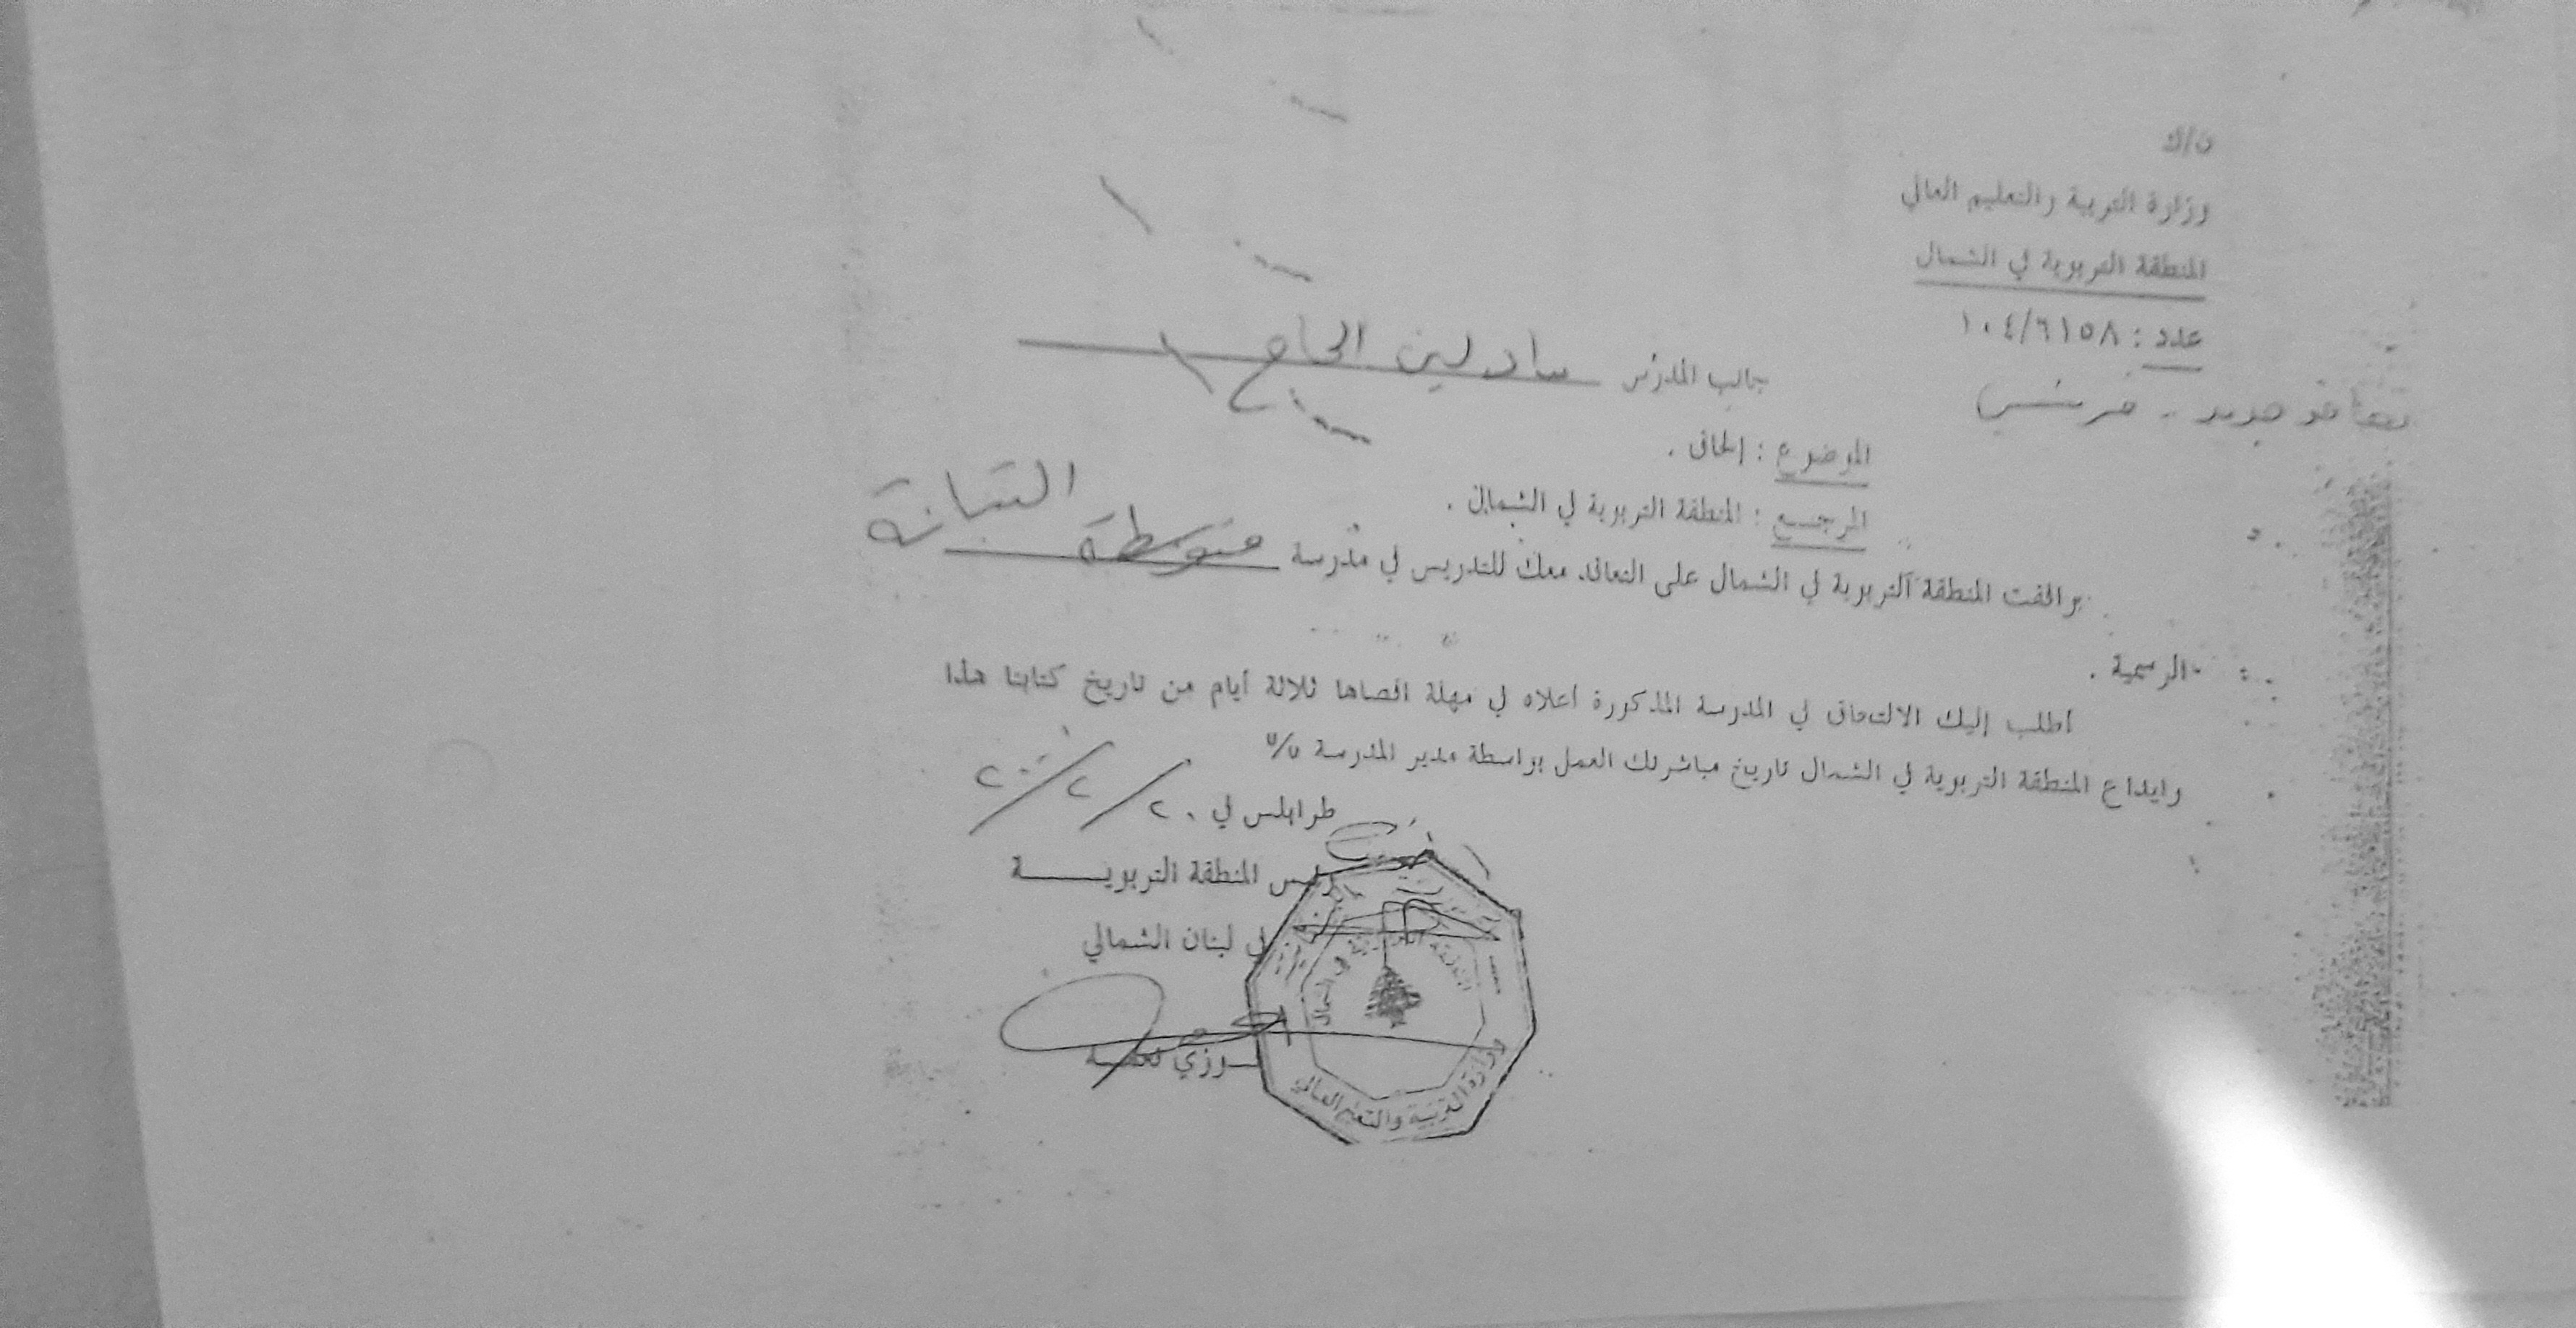 ن/ك
وزارة التربية والتعليم العالي
المنطقة التربوية في الشمال
عدد : ١٠٤/٦١٥٨
تعاقد جديد - فرنسي
جانب المدرس مادلين الحاج
الموضوع : إلحاق .
المرجع : المنطقة التربوية في الشمال .
وافقت المنطقة التربوية في الشمال على التعاقد معك للتدريس في مدرسة متوسطة التبانة
الرسمية .
أطلب إليك الالتحاق في المدرسة المذكورة أعلاه في مهلة اقصاها ثلاثة أيام من تاريخ كتابنا هذا
وايداع المنطقة التربوية في الشمال تاريخ مباشرتك العمل بواسطة مدير المدرسة
طرابلس في ٢٠/٢/٢٠٠
رئيس المنطقة التربويـــــة
في لبنان الشمالي
المنطقة التربوية في الشمال
وزارة التربية والتعليم العالي